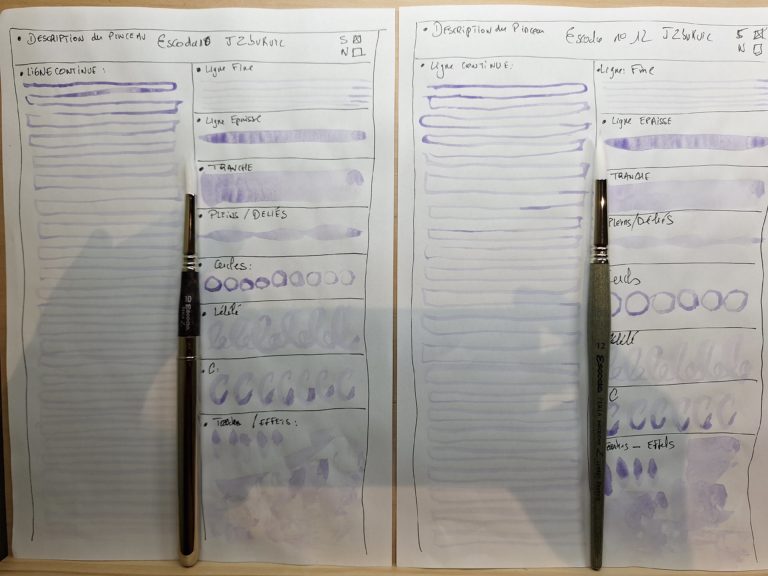 DESCRIPTION du PINCEAU Escoda 10 JZbukvic S
N
LIGNE CONTINUE :
Ligne Fine
Ligne Epaisse
TRANCHE
PLEINS / DELIÉS
Cercles :
Lélélé
C:
Touches / EFFETS :
10 ESCODA
DESCRIPTION du PINCEAU Escoda no 12 JZbukvic S
N
LIGNE CONTINUE :
Ligne Fine
Ligne EPAISSE
TRANCHE
PLEINS/DELIÉS
C
Effets
12 ESCODA PERLA